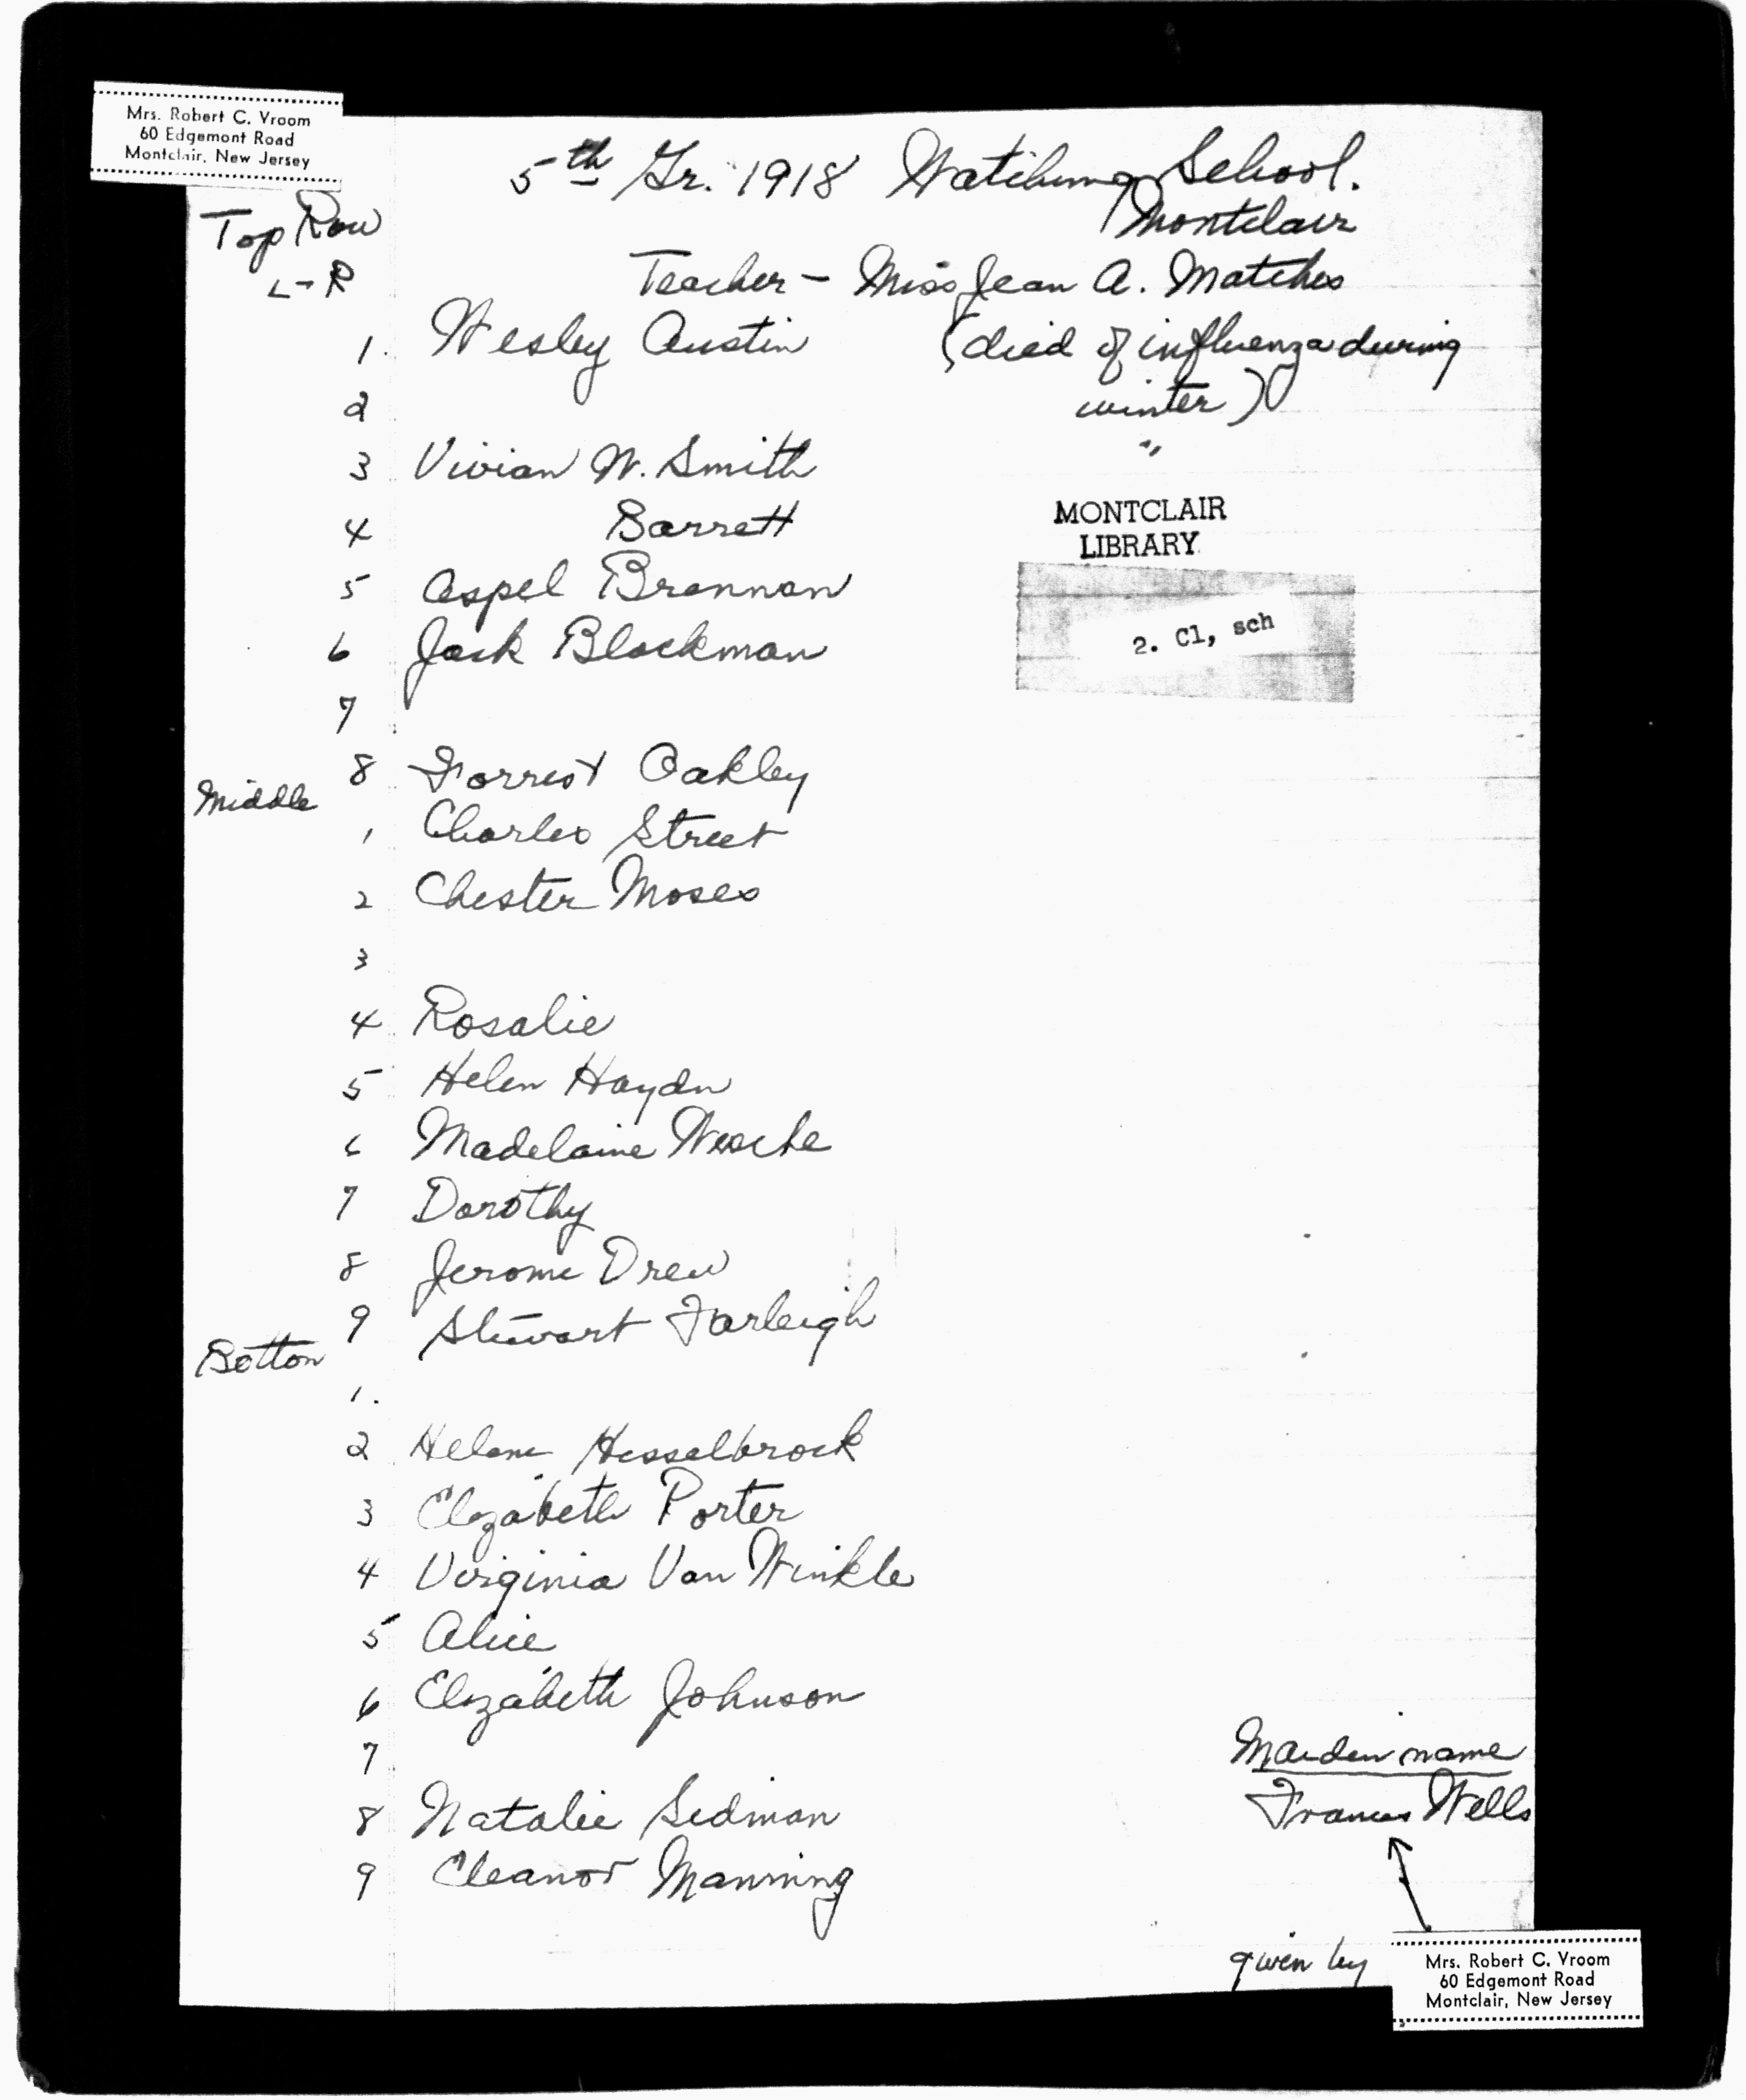 Mrs. Robert C. Vroom
60 Edgemont Road
Montclair, New Jersey
5th Gr. 1918 Watchung School.
Montclair
Top Row
L-R
Teacher - Miss Jean A. Matches
(died of influenza during
winter)
"
1. Wesley Austin
2
3 Vivian W. Smith
4 Barrett
5 Aspel Brennan
6 Jack Blackman
7
8 Forrest Oakley
MONTCLAIR
LIBRARY
2. Cl, sch
Middle
1 Charles Street
2 Chester Moses
3
4 Rosalie
5 Helen Haydn
6 Madelaine Wesche
7 Dorothy
8 Jerome Drew
9 Stewart Farleigh
Botton
1.
2 Helene Hesselbrock
3 Elizabeth Porter
4 Virginia Van Winkle
5 Alice
6 Elizabeth Johnson
7
8 Natalie Sidman
9 Eleanor Manning
Maiden name
Frances Wells
given by
Mrs. Robert C. Vroom
60 Edgemont Road
Montclair, New Jersey